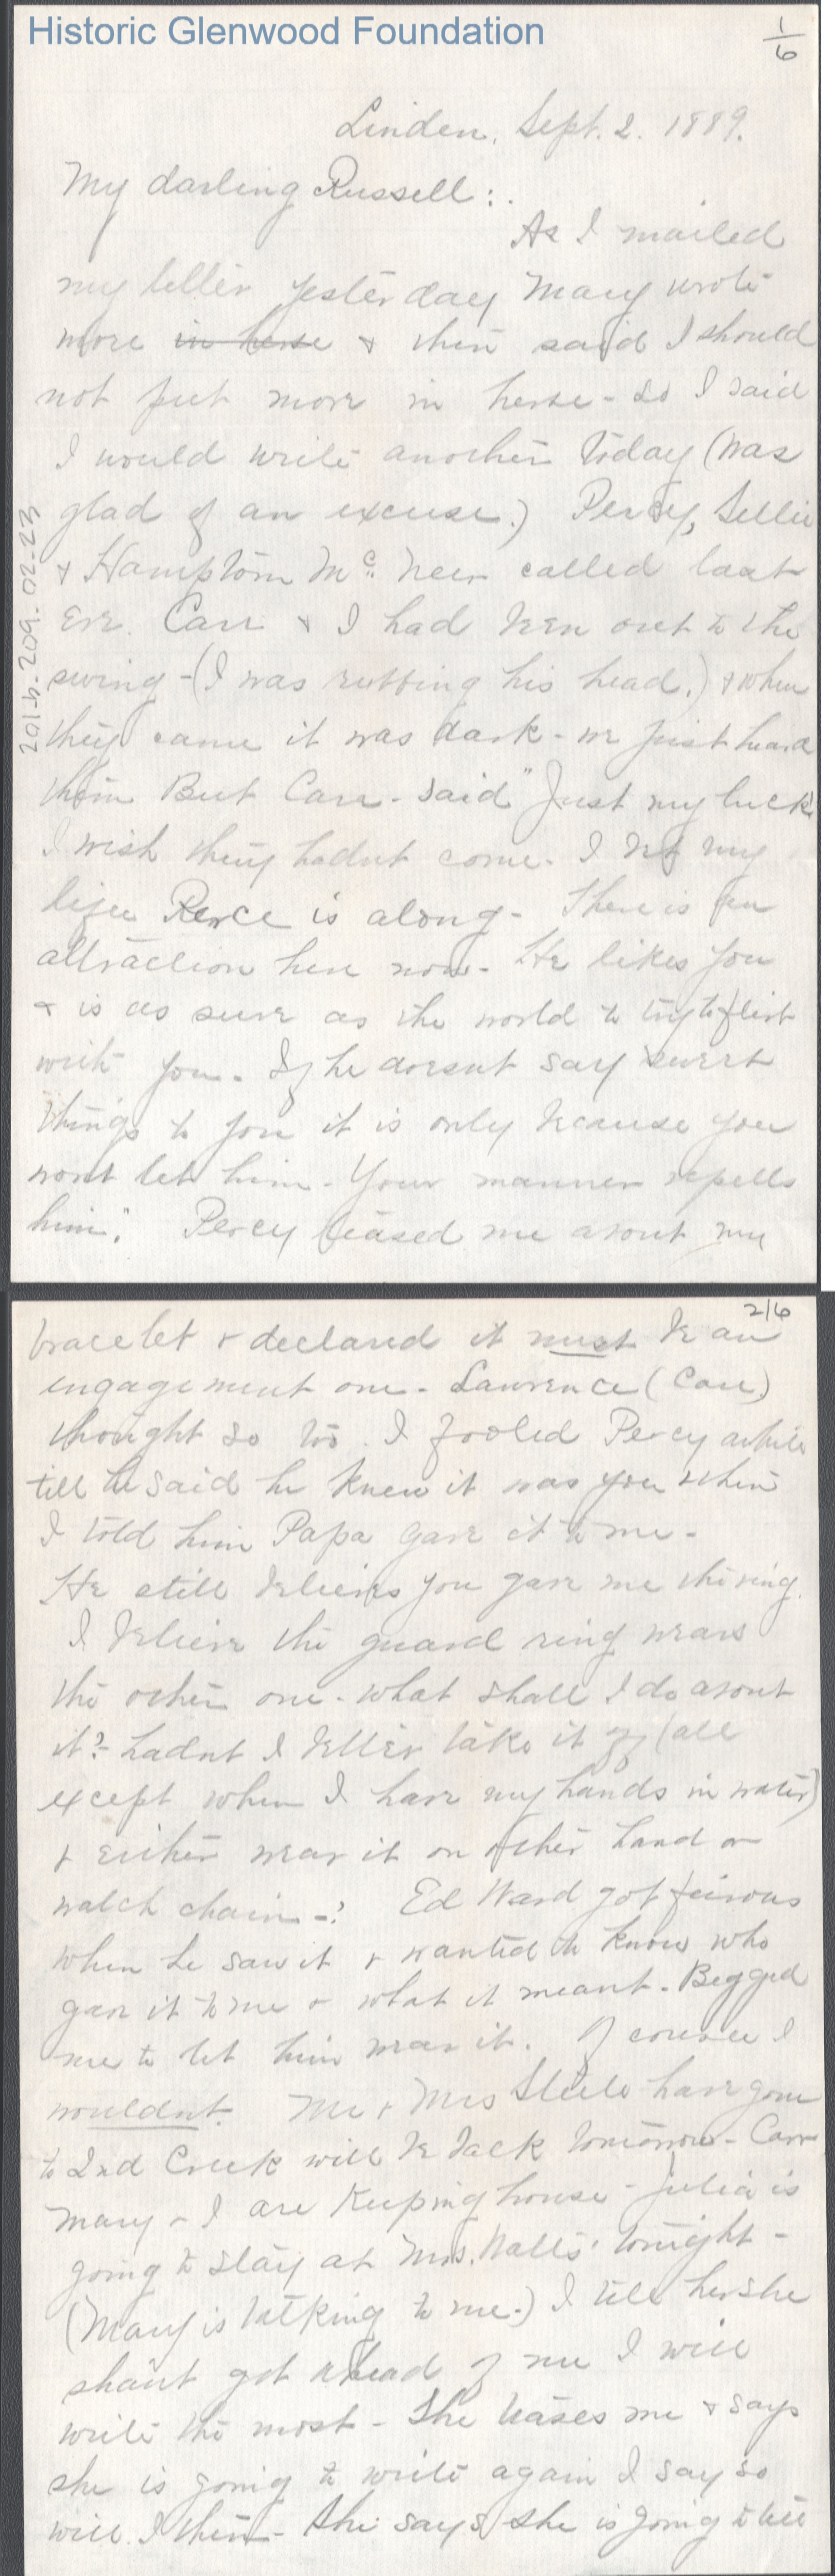 Historic Glenwood Foundation
1/6
Linden, Sept. 2. 1889.
My darling Russell:.
As I mailed
my letter yesterday Mary wrote
more in hers & then said I should
not put more in hers - so I said
I would write another today (was
glad of an excuse.) Percy, Lellie
& Hampton Mc. Neer called last
Eve. Carr & I had been out to the
swing - (I was rubbing his head.) & when
they came it was dark - we just heard
them But Carr - said "Just my luck
I wish they hadnt come. I bet my
life Perce is along - There is an
attraction here now - He likes you
& is as sure as the world to try to flirt
with you - If he doesnt say sweet
things to you it is only because you
wont let him - Your manner repells
him." Percy teased me about my
201-h-209.02-23
2/6
bracelet & declared it must be an
engagement one - Lawrence (Carr)
thought so too. I fooled Percy awhile
till he said he knew it was you when
I told him Papa gave it to me -
He still believes you gave me the ring.
I believe the guard ring wears
the other one - what shall I do about
it? - hadnt I better take it off (all
except when I have my hands in water)
& either wear it on other hand or
watch chain -? Ed Ward got furious
when he saw it & wanted to know who
gave it to me & what it meant - Begged
me to let him wear it. Of course I
wouldnt. Mr & Mrs Steele have gone
to 2nd Creek will be back tomorrow - Carr
Mary & I are keeping house - Julia is
going to stay at Mrs. Nalls' tonight -
(Mary is talking to me.) I tell her she
shant get ahead of me I will
write the most - She teases me & says
she is going to write again I say so
will I then - She says she is going to tell